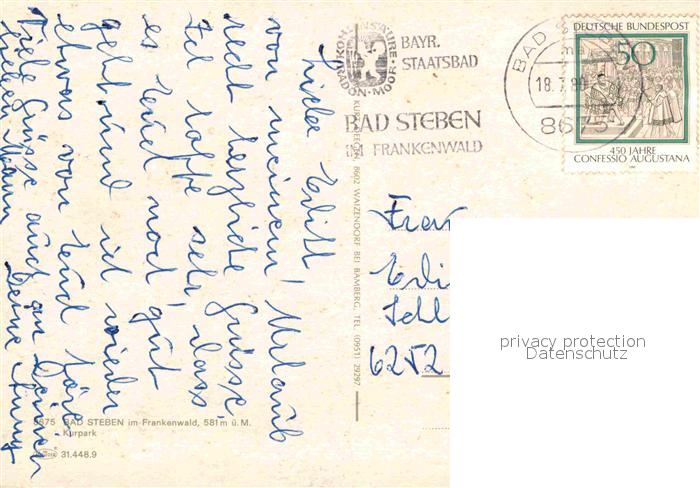 Liebe Edith!
von meinem Urlaub
recht herzliche Grüsse.
Ich hoffe sehr, dass
es Euch noch gut
geht und ich wieder
etwas von Euch höre.
Viele Grüsse auch an Deinen
lieben Mann Deine
KOHLENSÄURE
RADON · MOOR
BAYR.
STAATSBAD
BAD STEBEN
IM FRANKENWALD
BAD
18.7.80
8675
DEUTSCHE BUNDESPOST
50
450 JAHRE
CONFESSIO AUGUSTANA
8602 WAIZENDORF BEI BAMBERG, TEL. (0951) 29297
Frau
6252
privacy protection
Datenschutz
8675 BAD STEBEN im Frankenwald, 581 m ü. M.
Kurpark
31.448.9